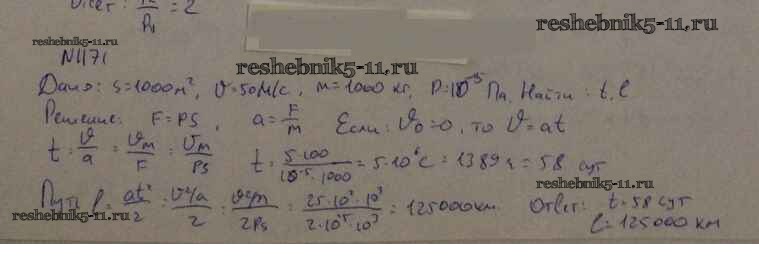 Ответ: P₂/P₁ = 2
reshebnik5-11.ru
reshebnik5-11.ru
N1171
reshebnik5-11.ru
Дано: S=1000м², υ=50м/с, m=1000 кг, P=10⁻⁵ Па. Найти: t, l
Решение: F=PS, a=F/m Если: υ₀=0, то υ=at
t = υ/a = υm/F = υm/PS t = 5·100/10⁻⁵·1000 = 5·10⁶с = 1389 ч = 58 сут
reshebnik5-11.ru
Путь l = at²/2 = υ²/a/2 = υ²m/2PS = 25·10²·10³/2·10⁻⁵·10³ = 125000км. Ответ: t=58 сут
reshebnik5-11.ru
l=125000 км
reshebnik5-11.ru